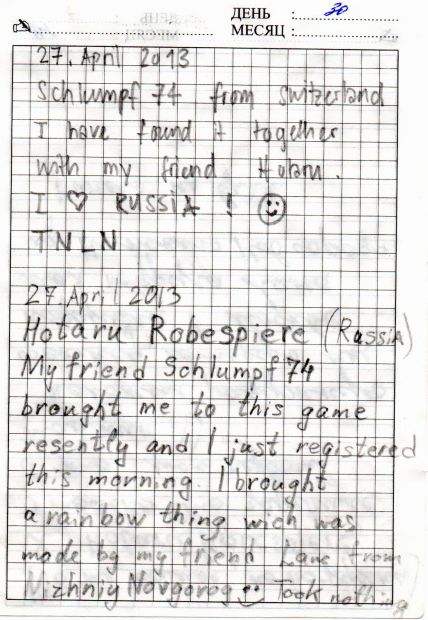 ДЕНЬ : 30
МЕСЯЦ :
27. April 2013
Schlumpf 74 from Switzerland
I have found it together
with my friend Hotaru.
I ♡ RUSSIA ! ☺
TNLN
27. April 2013
Hotaru Robespiere (Russia)
My friend Schlumpf 74
brought me to this game
resently and I just registered
this morning. I brought
a rainbow thing wich was
made by my friend Lane from
Nizhniy Novgorog☺ Took nothing